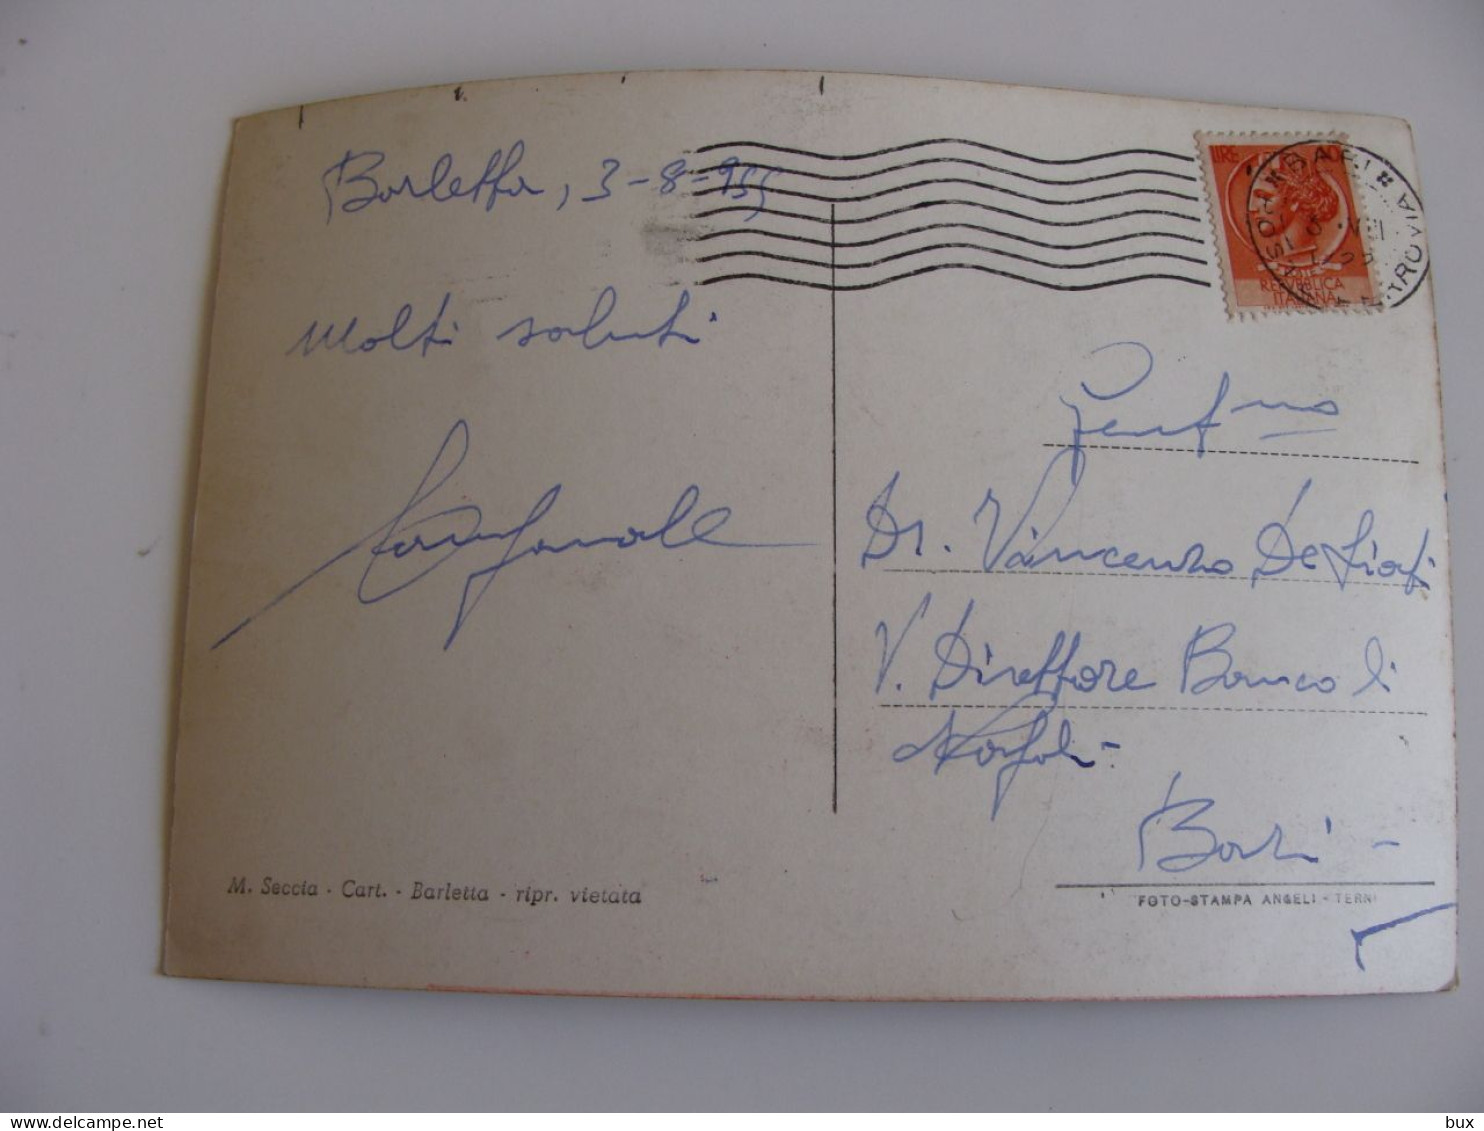 Barletta, 3-8-955
Molti saluti
LIRE
BARI
FERROVIA
VIII
REPVBBLICA
ITALIANA
Gent.mo
Dr. Vincenzo De
V. Direttore Banco di
Napoli -
Bari -
M. Seccia - Cart. - Barletta - ripr. vietata
FOTO-STAMPA ANGELI - TERNI
bux